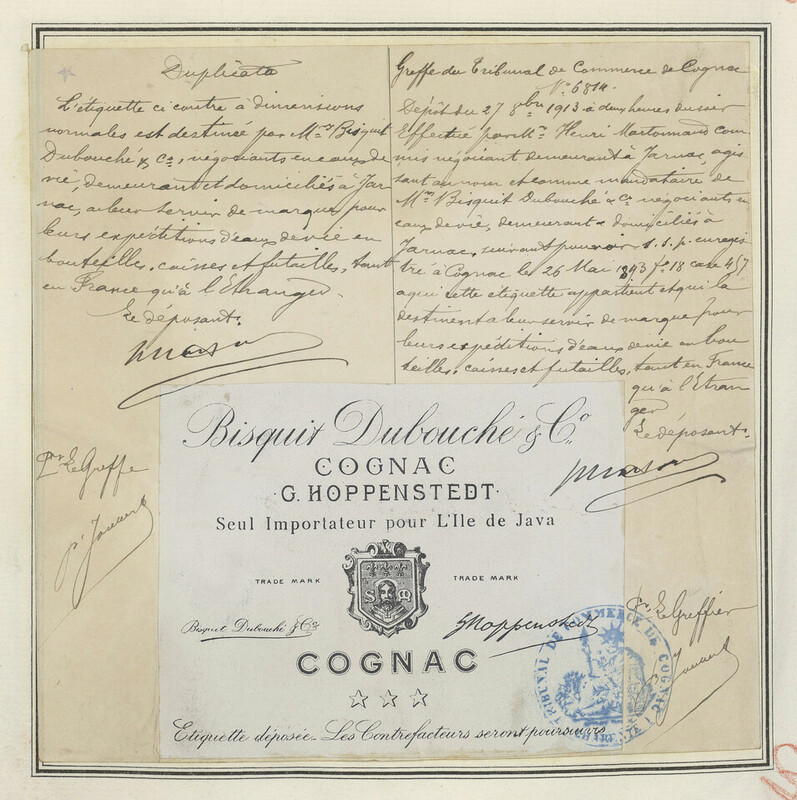 Duplicata
L'étiquette ci contre à dimensions
normales est destinée par Mrs Bisquit
Dubouché & Co, négociants en eaux de
vie, demeurant et domiciliés à Jar
nac, a leur servir de marque pour
leurs expéditions d'eaux de vie en
bouteilles, caisses et futailles, tant
en France qu'à l'Etranger.
Le déposant.
Pour Le Greffe
Greffe du Tribunal de Commerce de Cognac
No 6814.
Dépôt du 27 8bre 1913 à deux heures du soir
Effectué par Mr Henri Com
mis négociant demeurant à Jarnac, agis
sant au nom et comme mandataire de
Mrs Bisquit Dubouché & Co négociants en
eaux de vie, demeurant & domiciliés à
Jarnac, suivant pouvoir s.s.p. enregis
tré à Cognac le 26 Mai 1893 fo 18 case 457
a qui cette étiquette appartient et qui la
destinent a leur servir de marque pour
leurs expéditions d'eaux de vie en bou
teilles, caisses et futailles, tant en France
qu'à l'Etran
ger
Le déposant.
Bisquit Dubouché & Co.
COGNAC
·G. HOPPENSTEDT·
Seul Importateur pour L'Ile de Java
TRADE MARK TRADE MARK
S M
Bisquit Dubouché & Co GHoppenstedt
COGNAC
Etiquette déposée - Les Contrefacteurs seront poursuivis
Le Greffier
TRIBUNAL DE COMMERCE DE COGNAC